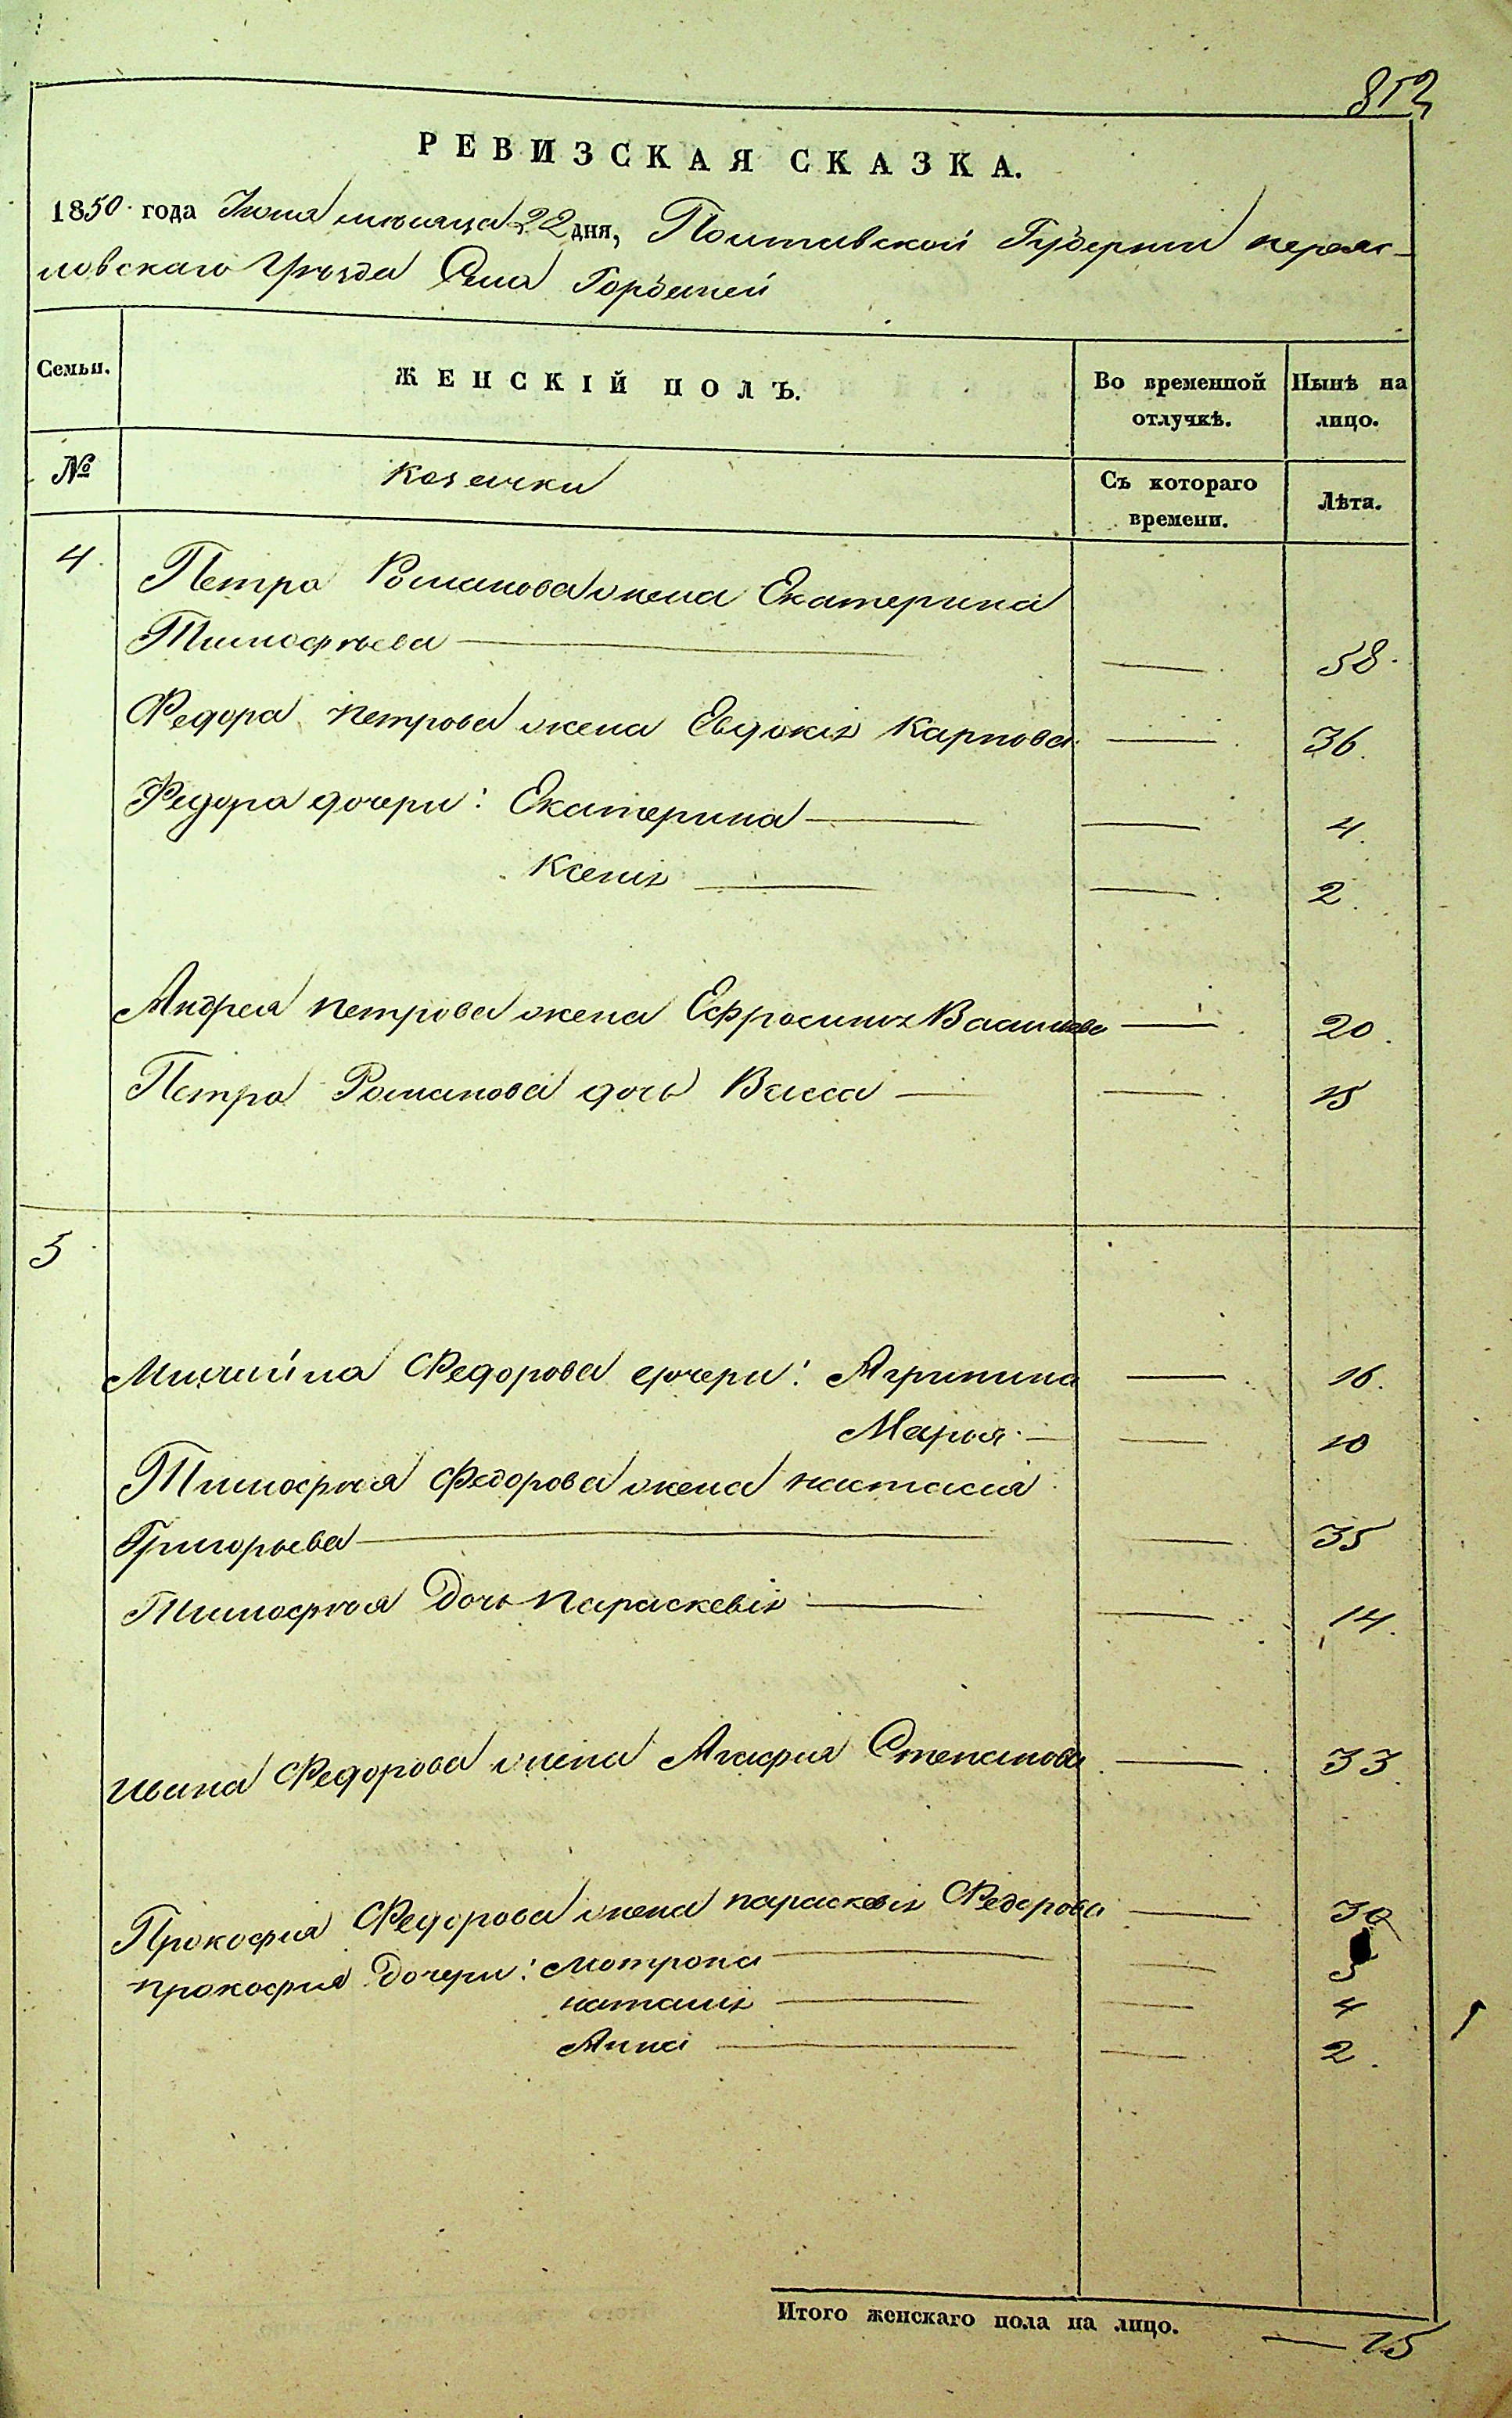 852
РЕВИЗСКАЯ СКАЗКА.
1850 года Июня месяца 22 дня, Полтавской Губернии переяс-
ловскаго Уѣзда Села Горбаней
Семьи. ЖЕНСКІЙ ПОЛЪ. Во временной отлучкѣ. Нынѣ на лицо.
№ козачки Съ котораго времени. Лѣта.
4. Петра Романова жена Екатерина
Тимофѣева — — 58.
Федора петрова жена Евдокія Карпова — 36.
Федора дочери: Екатерина — — 4.
Ксенія — — 2.
Андрея петрова жена Ефросинія Василиева — 20.
Петра Романова дочь Васса — — 15
5
Михайла Федорова дочери: Агрипина — 16.
Марья — — 10
Тимофѣя Федорова жена настасія
Григорьева — — 35
Тимофѣя Дочь параскевія — — 14.
ивана Федорова жена Агафия Степанова — 33.
Прокофия Федорова жена параскевія Федорова — 30
прокофия Дочери: мотрона — — 5
наталія — — 4
Анна — — 2.
Итого женскаго пола на лицо. — 15